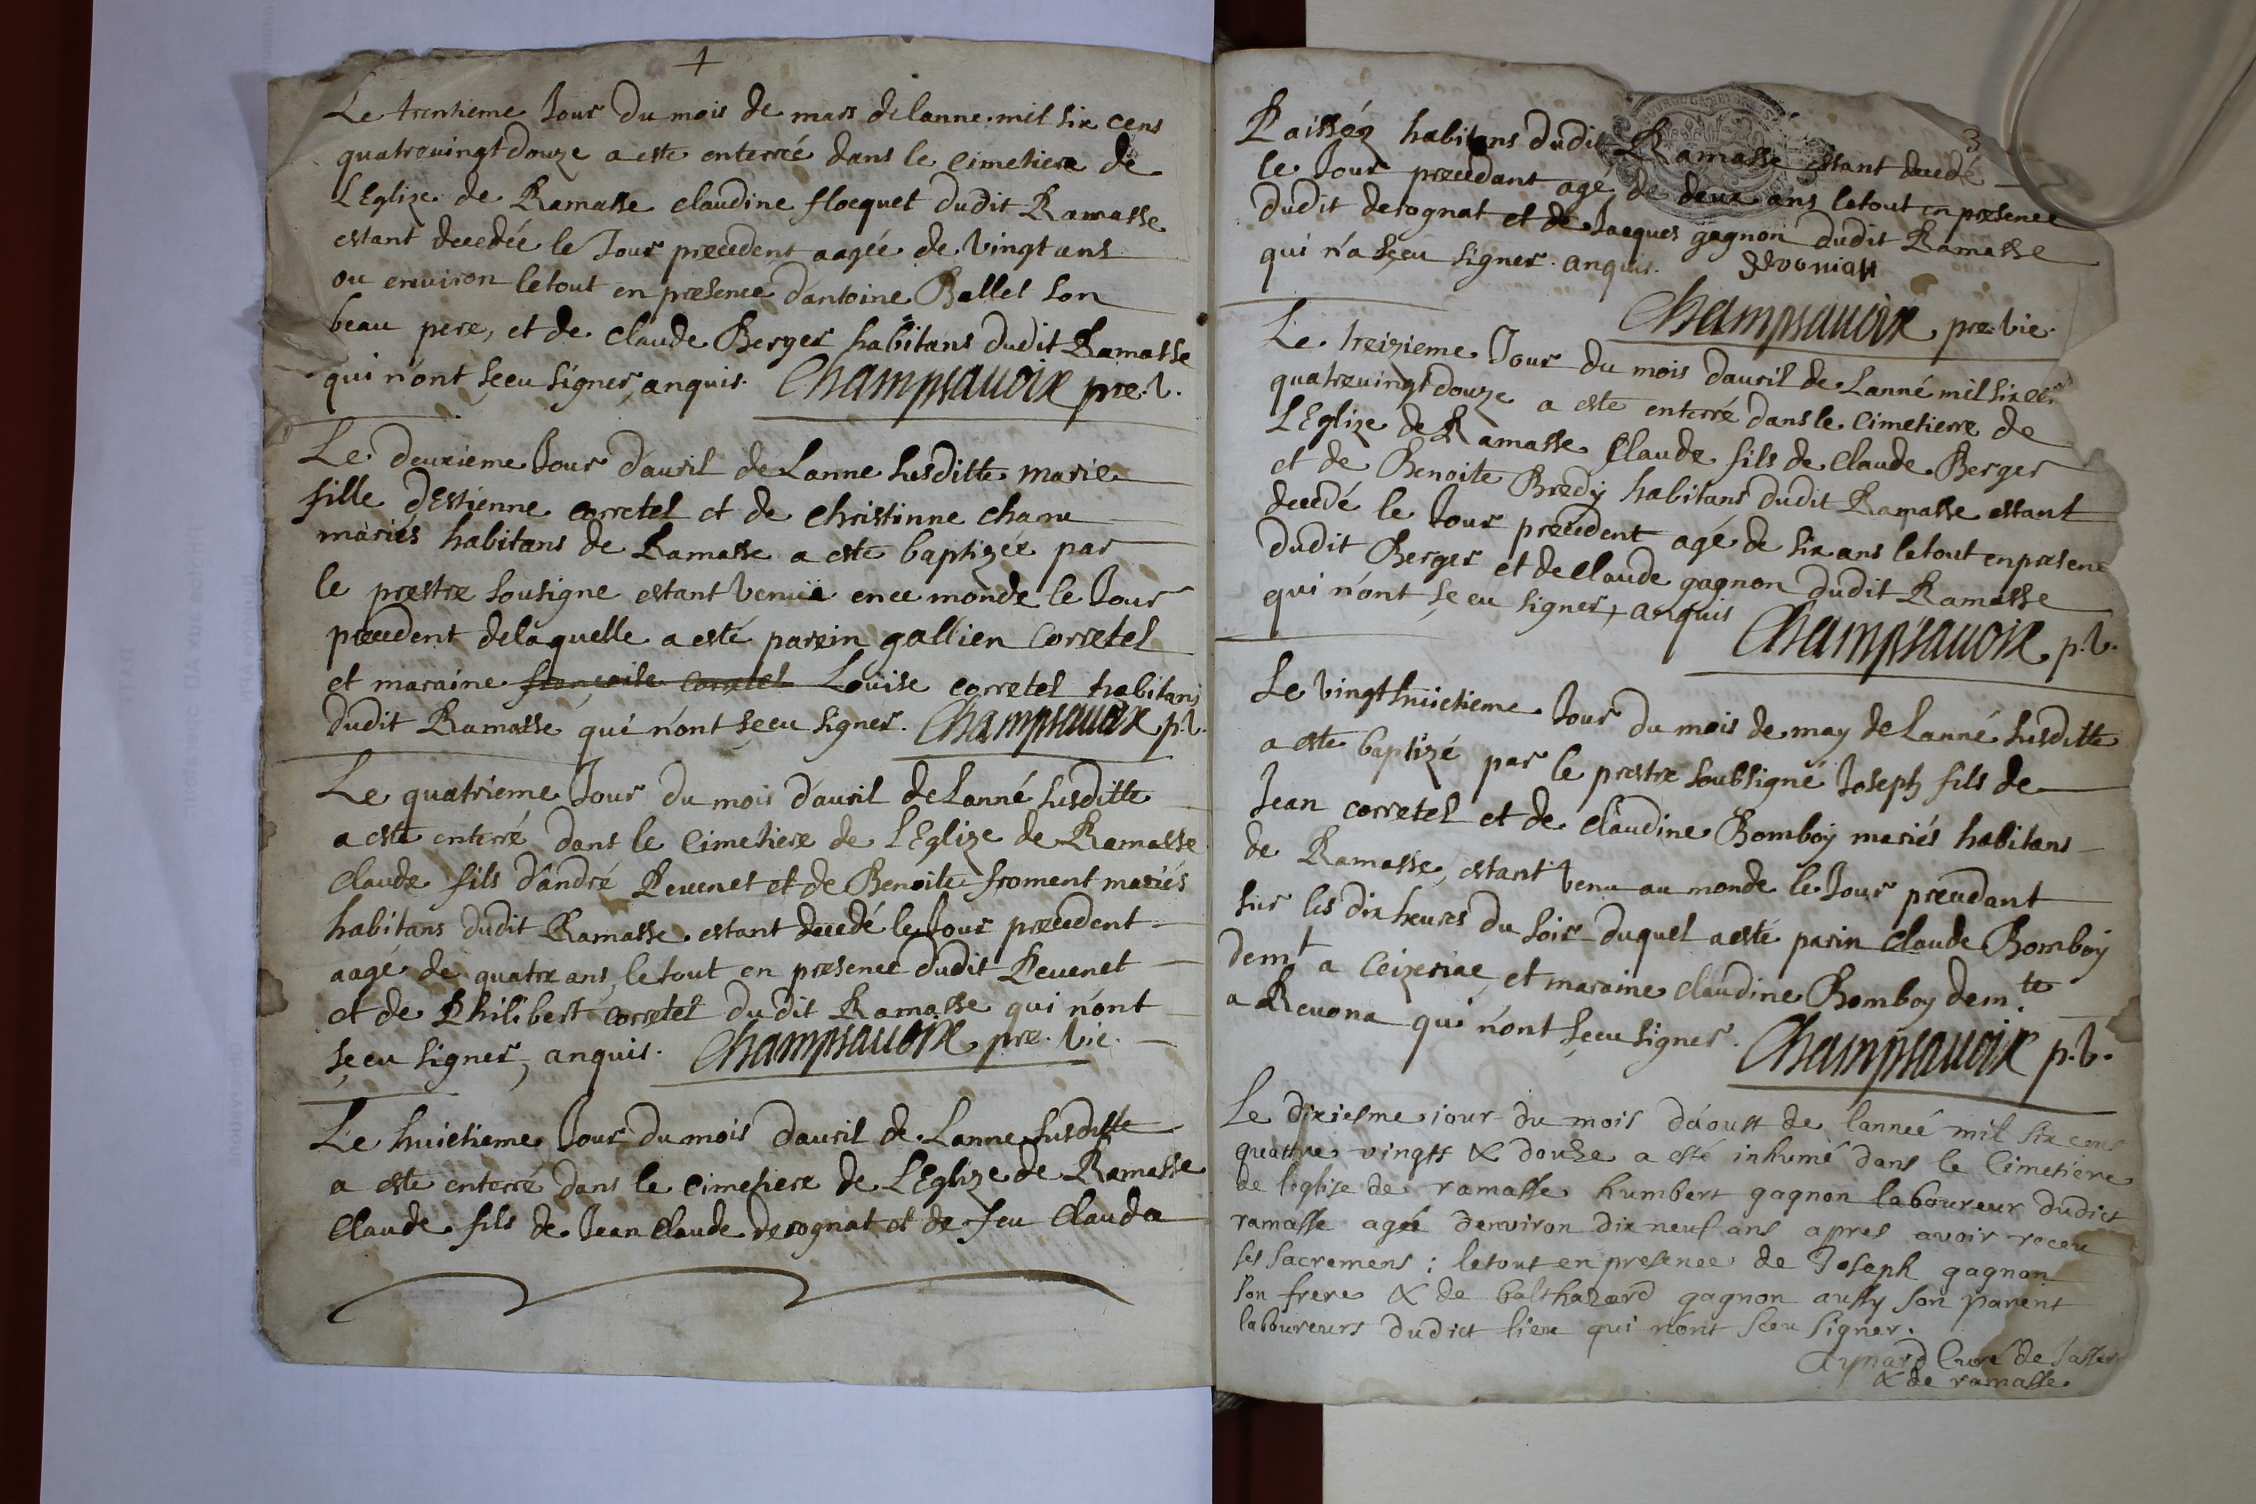 +
Le trentieme Jour Du mois de mars de lanne mil six cens
quatrevingt Douze a este enterrée dans le cimetiere de
LEglize de Ramasse claudine flocquet dudit Ramasse
estant decedée le Jour precedent aagée de vingt ans
ou environ le tout en presence d'antoine Ballet son
beau pere, et de claude Berger habitans dudit Ramasse
qui n'ont sçeu signer, anquis. Champsauoix pre. v.
Le deuxieme Jour d'auril de Lanne susditte marie
fille d'Estienne corretel et de christinne chanu
mariés habitans de Ramasse a este baptizée par
le prestre sousigne estant venuë en ce monde le Jour
precedent de laquelle a esté parein gallien corretel
et maraine françoise corretel Loüise corretel habitans
dudit Ramasse qui n'ont sçeu signer. Champsauoix p. v.
Le quatrieme Jour du mois d'auril de Lanné susditte
a este enterré dans le Cimetiere de LEglize de Ramasse
claude fils d'andré Peuenet et de Benoite froment mariés
habitans dudit Ramasse estant decedé le Jour precedent
aagé de quatre ans, le tout en presence dudit Peuenet
et de Philibert corretel dudit Ramasse qui n'ont
sçeu signer, anquis. Champsauoix pre. vic.
Le huictieme Jour du mois d'auril de Lanne susditte
a este enterré dans le cimetiere de LEglize de Ramasse
claude fils de Jean claude derognat et de feu clauda
3
Paisséz habitans dudit Ramasse estant decedé
le Jour precedant agé de deux ans le tout en presence
dudit derognat et de Jacques gagnon dudit Ramasse
qui n'a sçeu signer. anquis.
Champsauoix pre. vic.
Le treizieme Jour du mois d'auril de Lanné mil six cen
quatrevingt douze a este enterré dans le cimetierre de
LEglize de Ramasse Claude fils de claude Berger
et de Benoite Bredy habitans dudit Ramasse estant
decedé le Jour precedent agé de six ans le tout en presenc
dudit Berger et de claude gagnon dudit Ramasse
qui n'ont sçeu signer, anquis Champsauoix p. v.
Le vingt huictieme Jour du mois de may de Lanné susditte
a este baptizé par le prestre soubsigné Joseph fils de
Jean corretel et de claudine Bomboy mariés habitans
de Ramasse, estant venu au monde le Jour precedant
sur les dix heures du soir duquel a esté parin claude Bomboy
demt a Ceizeriac, et maraine claudine Bomboy demte
a Reuona qui n'ont sçeu signer. Champsauoix p. v.
Le dixiesme iour du mois d'aoust de l'année mil six cens
quattre vingts & douze a esté inhumé dans le Cimetiere
de l'eglise de ramasse humbert gagnon laboureur dudict
ramasse agée d'environ dix neuf ans apres avoir receu
ses sacremens : le tout en presence de Joseph gagnon
son frere & de balthazard gagnon aussy son parent
laboureurs dudict lieu qui n'ont sceu signer.
Aynard Curé de Jasseron
& de ramasse